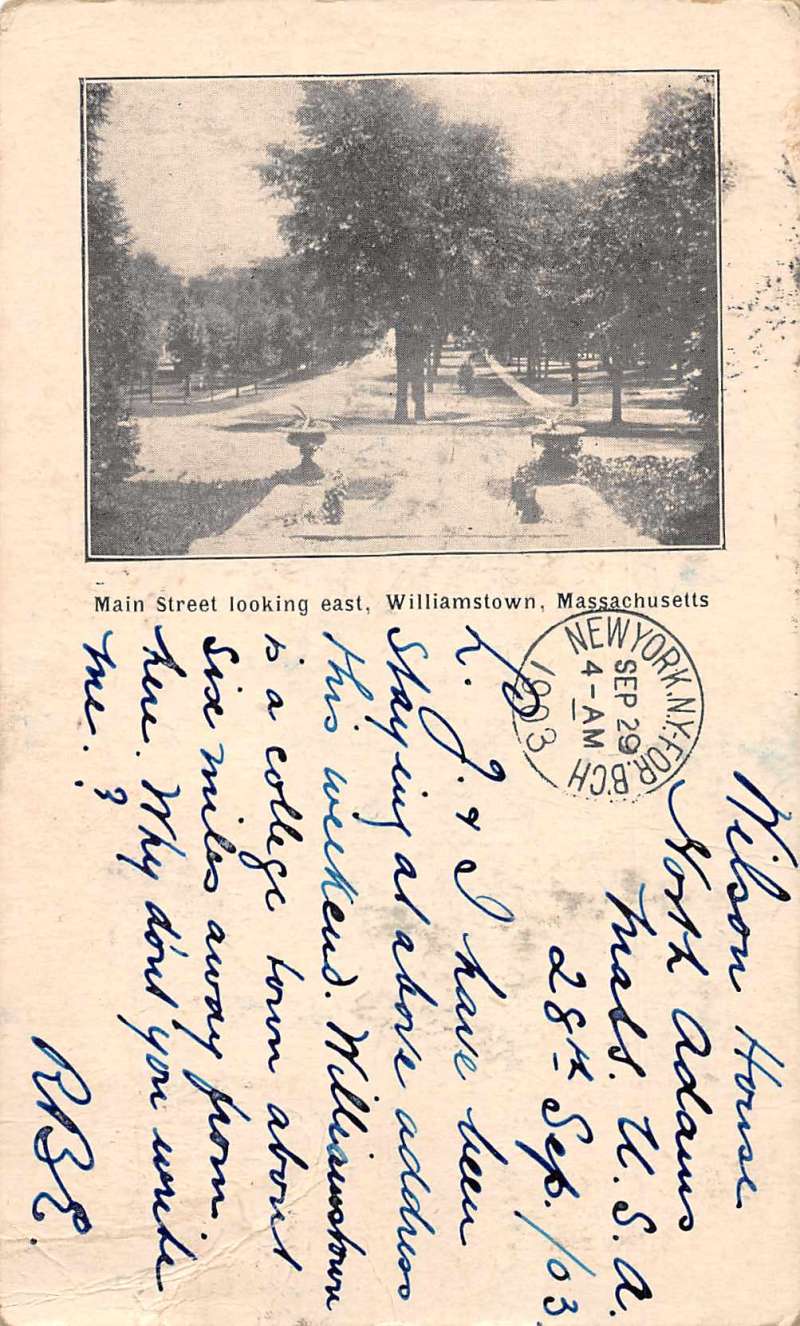 Main Street looking east, Williamstown, Massachusetts
NEW YORK, N.Y. FOR. B'CH
SEP 29
4-AM
1903
Wilson House
North Adams
Mass. U. S. A.
28th Sep. /03.
L. J. & I have been
staying at above address
this weekend. Williamstown
is a college town about
six miles away from
here. Why dont you write
me. ?
RBE.